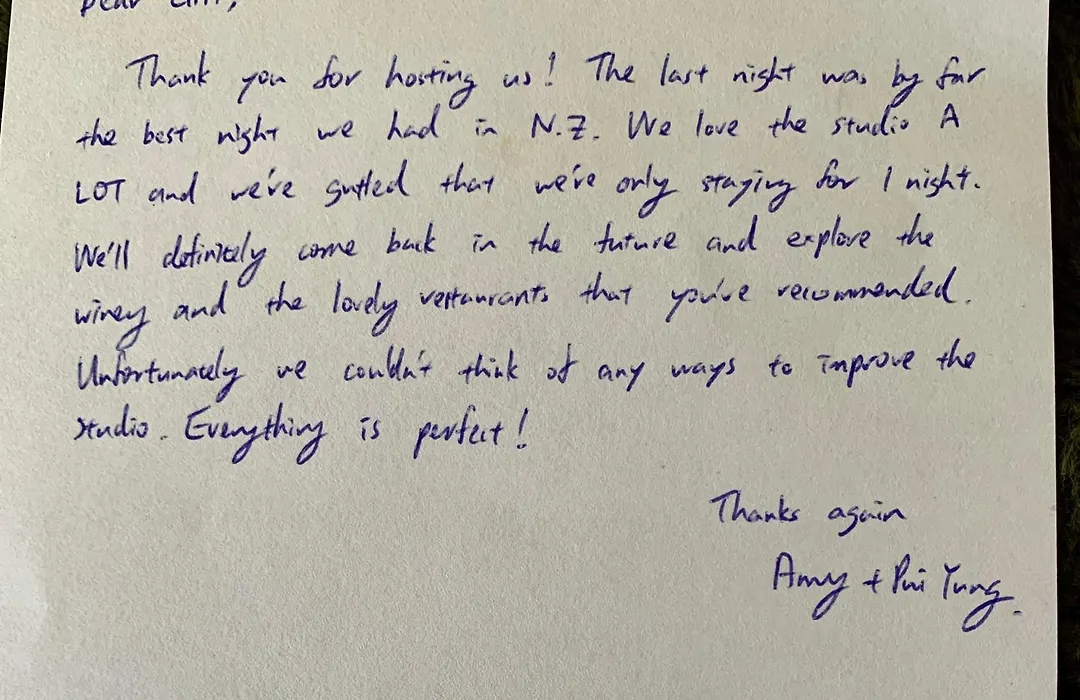 Dear
Thank you for hosting us! The last night was by far
the best night we had in N.Z. We love the studio A
LOT and we're gutted that we're only staying for 1 night.
We'll definitely come back in the future and explore the
winey and the lovely restaurants that you've recommended.
Unfortunately we couldn't think of any ways to improve the
studio. Everything is perfect!
Thanks again
Amy + Pui Yung.